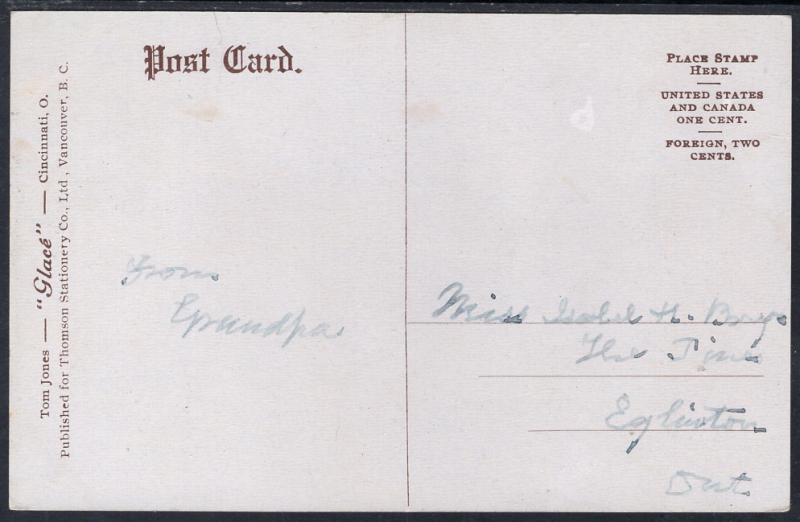 Post Card.
PLACE STAMP
HERE.
UNITED STATES
AND CANADA
ONE CENT.
FOREIGN, TWO
CENTS.
Tom Jones — "Glacé" — Cincinnati, O.
Published for Thomson Stationery Co., Ltd., Vancouver, B. C.
From
Grandpa
Miss Isobel H.
The Pines
Eglinton
Ont.